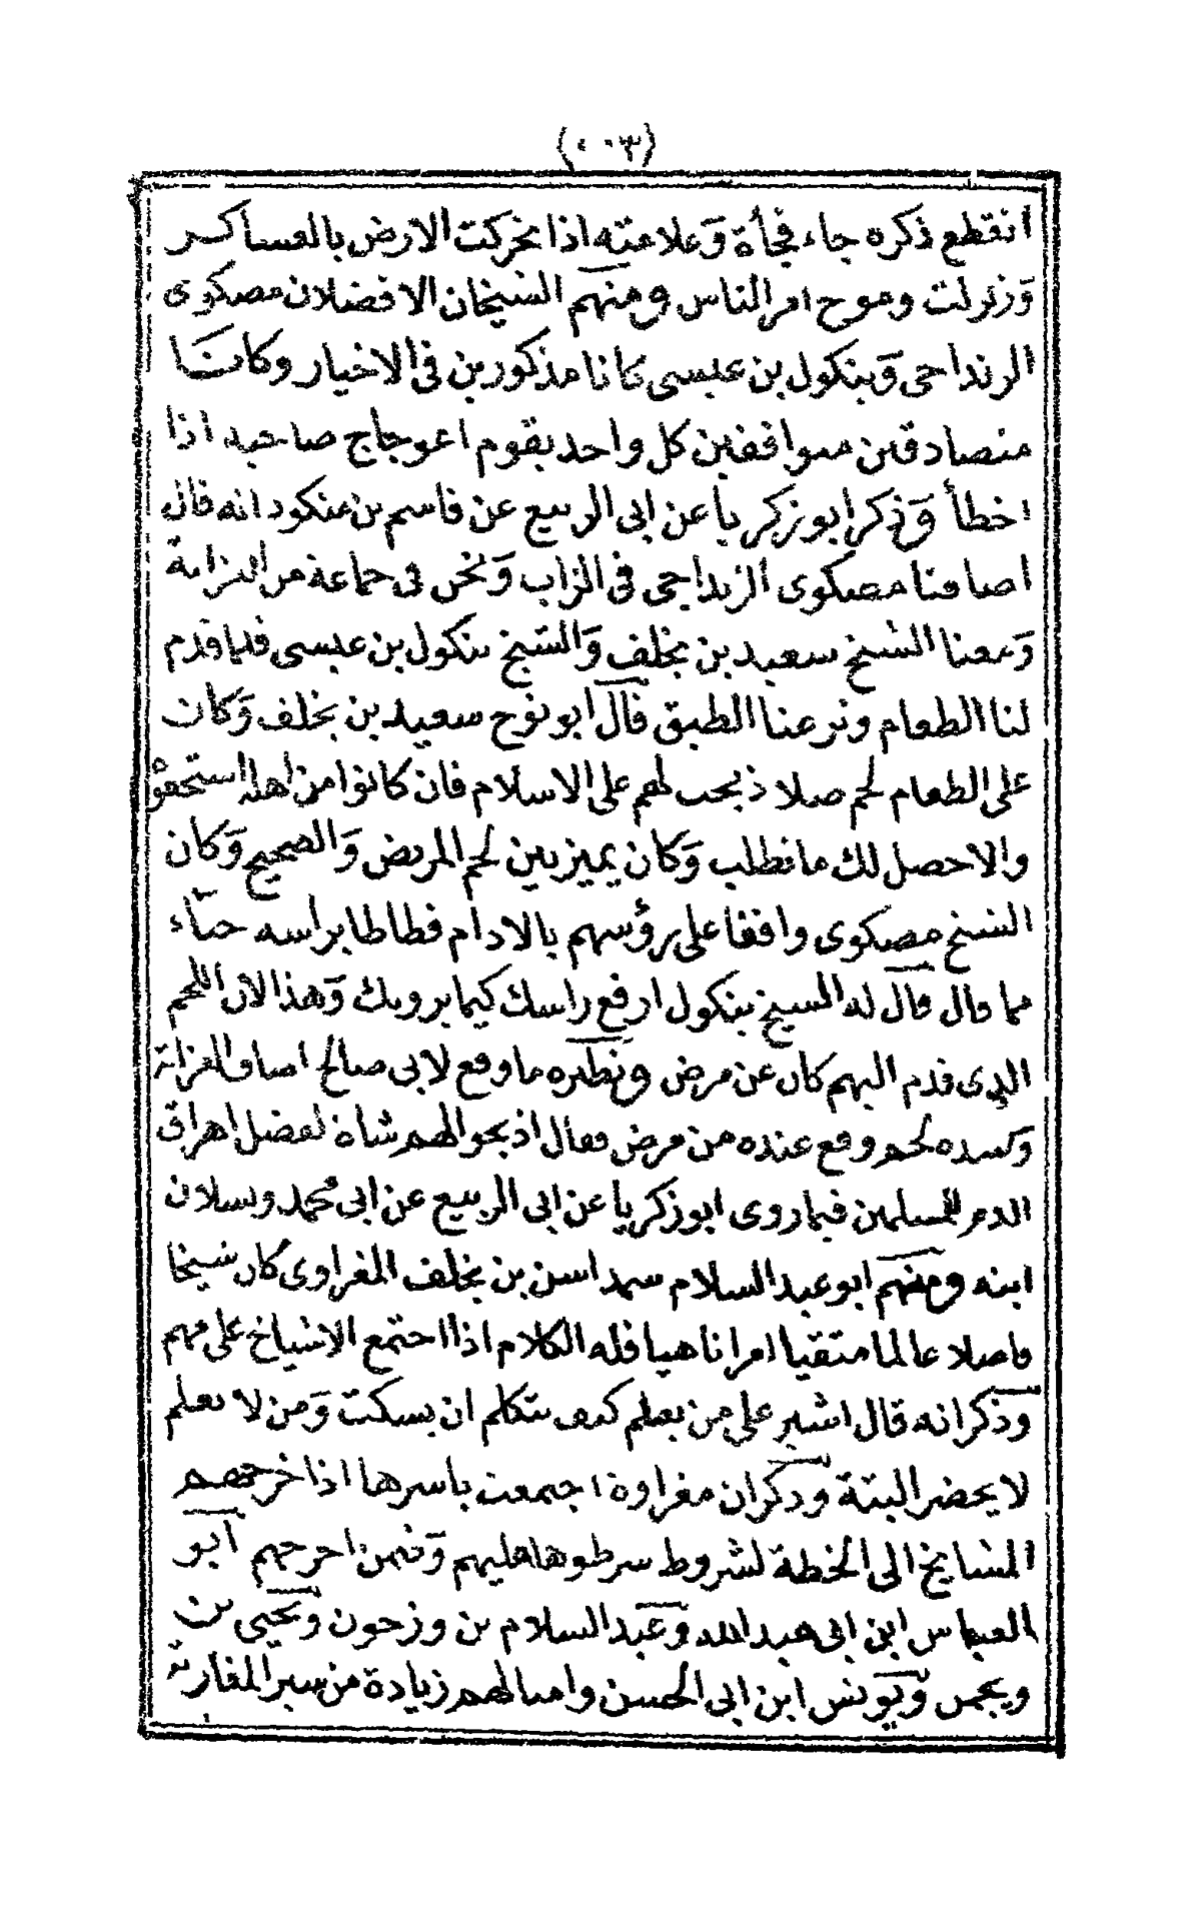 (٣٠٠)
انقطع ذكره جاء فجأة وعلامته اذا تحركت الارض بالعساكر
وزلزلت وموج امر الناس ومنهم الشيخان الافضلان مصكوى
الزنداجى وينكول بن عيسى كانا مذكورين فى الاخيار وكانا
متصادقين متوافقين كل واحد يقوم اعوجاج صاحبه اذا
اخطأ وذكر ابو زكرياء عن ابى الربيع عن قاسم بن منكود انه قال
اضافنا مصكوى الزنداجى فى الزاب ونحن فى جماعة من العزابة
ومعنا الشيخ سعيد بن يخلف والشيخ ينكول بن عيسى فلما قدم
لنا الطعام ونزعنا الطبق قال ابو نوح سعيد بن يخلف وكان
على الطعام لحم صلا ذبحت لهم على الاسلام فان كانوا من اهله استحقوا
والا حصل لك ما تطلب وكان يميز بين لحم المريض والصحيح وكان
الشيخ مصكوى واقفا على رؤسهم بالادام فطاطا براسه حياء
مما قال قال له الشيخ ينكول ارفع راسك كيما يرويك وهذا لان اللحم
الذى قدم اليهم كان عن مرض ونظيره ما وقع لابى صالح اضاف العزابة
وكسده لحم وقع عنده من مرض فقال اذبحوا لهم شاة لفضل اهراق
الدم للمسلمين فيما روى ابو زكريا عن ابى الربيع عن ابى محمد ويسلان
ابنه ومنهم ابو عبد السلام سمداسن بن يخلف المغراوى كان شيخا
فاضلا عالما متقيا امرا ناهيا فله الكلام اذا اجتمع الاشياخ على مهم
وذكر انه قال اشير على من يعلم كيف يتكلم ان يسكت ومن لا يعلم
لا يحضر البتة وذكر ان مغراوة اجتمعت باسرها اذا خرجهم
المشايخ الى الخطة لشروط شرطوها عليهم وفيمن اخرجهم ابو
العباس ابن ابى عبد الله وعبد السلام بن وزجون ويحيى بن
ويجمن ويونس ابن ابى الحسن وامثالهم زيادة من سير المغاربة